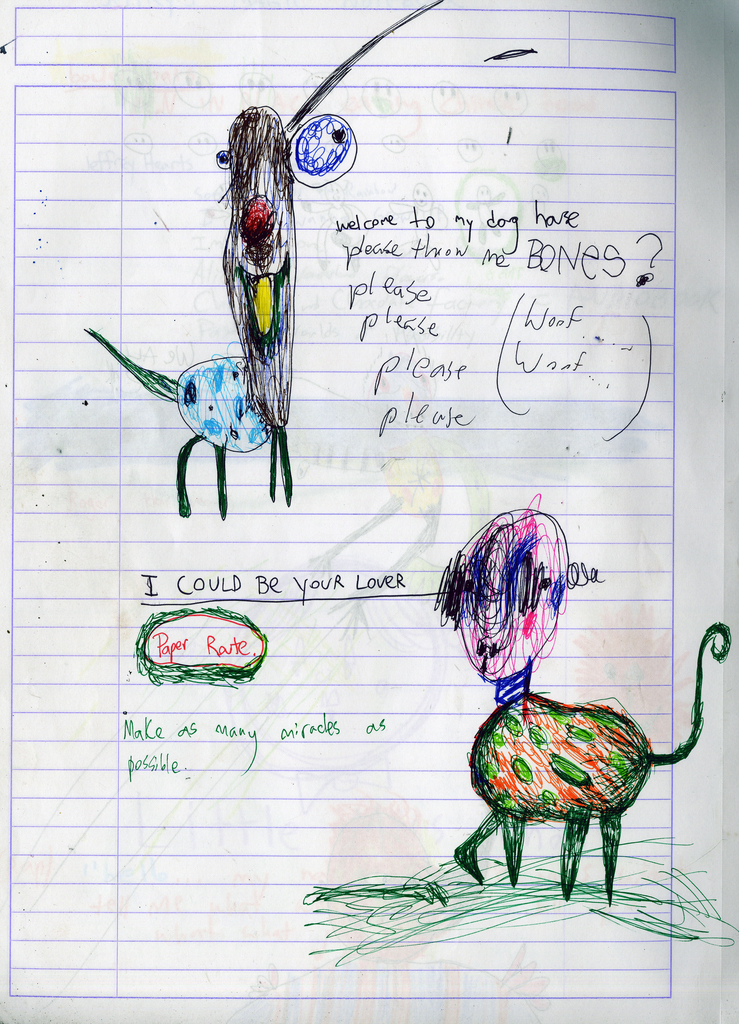 welcome to my dog house
please throw me BONES?
please
please
please
please
(Woof...
Woof...)
I COULD BE YOUR LOVER
Paper Route.
Make as many miracles as
possible.